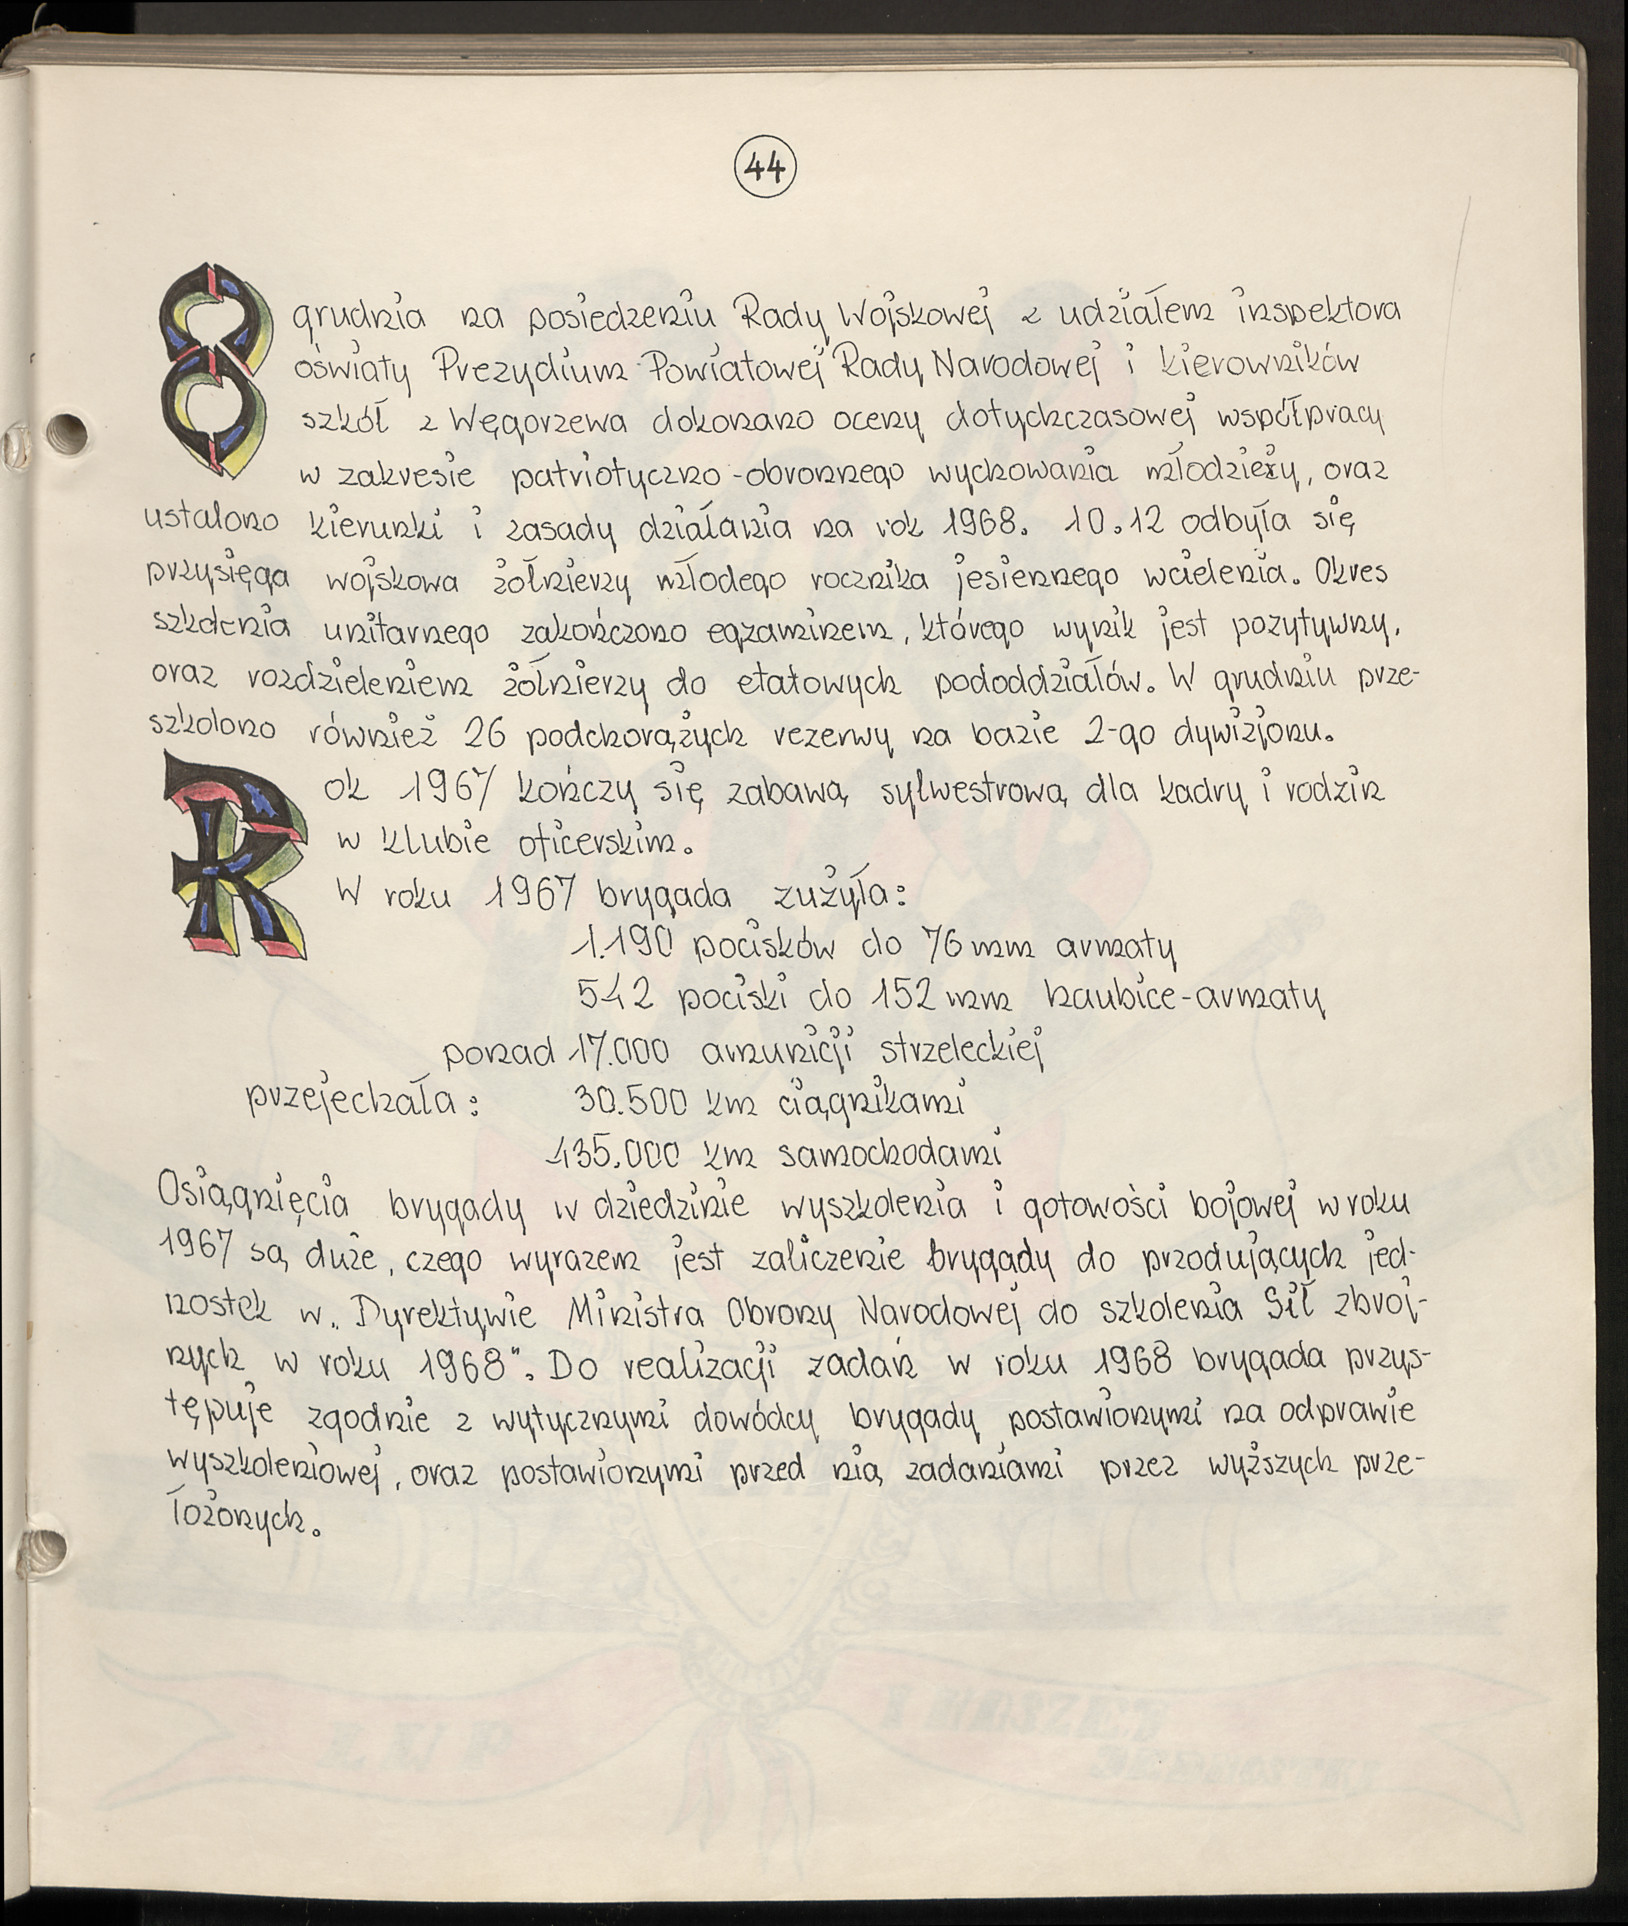 44
8 grudnia na posiedzeniu Rady Wojskowej z udziałem inspektora
oświaty Prezydium Powiatowej Rady Narodowej i kierowników
szkół z Węgorzewa dokonano oceny dotychczasowej współpracy
w zakresie patriotyczno-obronnego wychowania młodzieży, oraz
ustalono kierunki i zasady działania na rok 1968. 10.12 odbyła się
przysięga wojskowa żołnierzy młodego rocznika jesiennego wcielenia. Okres
szkolenia unitarnego zakończono egzaminem, którego wynik jest pozytywny,
oraz rozdzieleniem żółnierzy do etatowych pododdziałów. W grudniu prze-
szkolono również 26 podchorążych rezerwy na bazie 2-go dywizjonu.
Rok 1967 kończy się zabawą sylwestrową dla kadry i rodzin
w klubie oficerskim.
W roku 1967 brygada zużyła:
1.190 pocisków do 76 mm armaty
542 pociski do 152 mm haubice-armaty
ponad 17.000 amunicji strzeleckiej
przejechała: 30.500 km ciągnikami
435.000 km samochodami
Osiągnięcia brygady w dziedzinie wyszkolenia i gotowości bojowej w roku
1967 są duże, czego wyrazem jest zaliczenie brygady do przodujących jed-
nostek w „Dyrektywie Ministra Obrony Narodowej do szkolenia Sił zbroj-
nych w roku 1968". Do realizacji zadań w roku 1968 brygada przys-
tępuje zgodnie z wytycznymi dowódcy brygady postawionymi na odprawie
wyszkoleniowej, oraz postawionymi przed nią zadaniami przez wyższych prze-
łożonych.